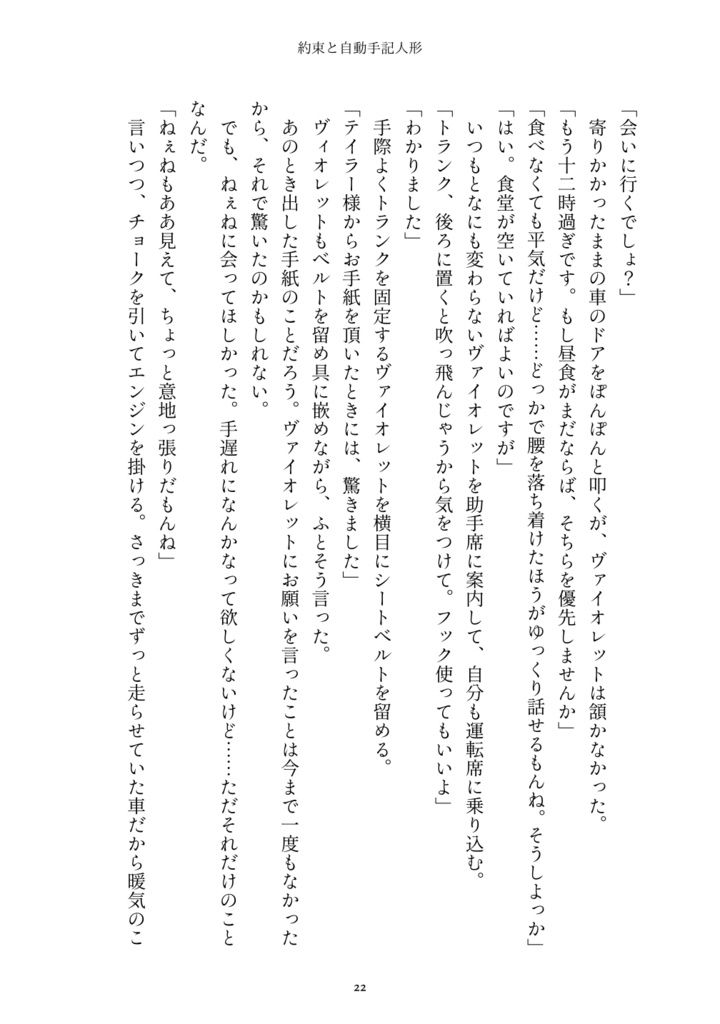 約束と自動手記人形
「会いに行くでしょ？」
寄りかかったままの車のドアをぽんぽんと叩くが、ヴァイオレットは頷かなかった。
「もう十二時過ぎです。もし昼食がまだならば、そちらを優先しませんか」
「食べなくても平気だけど……どっかで腰を落ち着けたほうがゆっくり話せるもんね。そうしよっか」
「はい。食堂が空いていればよいのですが」
いつもとなにも変わらないヴァイオレットを助手席に案内して、自分も運転席に乗り込む。
「トランク、後ろに置くと吹っ飛んじゃうから気をつけて。フック使ってもいいよ」
「わかりました」
手際よくトランクを固定するヴァイオレットを横目にシートベルトを留める。
「テイラー様からお手紙を頂いたときには、驚きました」
ヴィオレットもベルトを留め具に嵌めながら、ふとそう言った。
あのとき出した手紙のことだろう。ヴァイオレットにお願いを言ったことは今まで一度もなかった
から、それで驚いたのかもしれない。
でも、ねぇねに会ってほしかった。手遅れになんかなって欲しくないけど……ただそれだけのこと
なんだ。
「ねぇねもああ見えて、ちょっと意地っ張りだもんね」
言いつつ、チョークを引いてエンジンを掛ける。さっきまでずっと走らせていた車だから暖気のこ
22